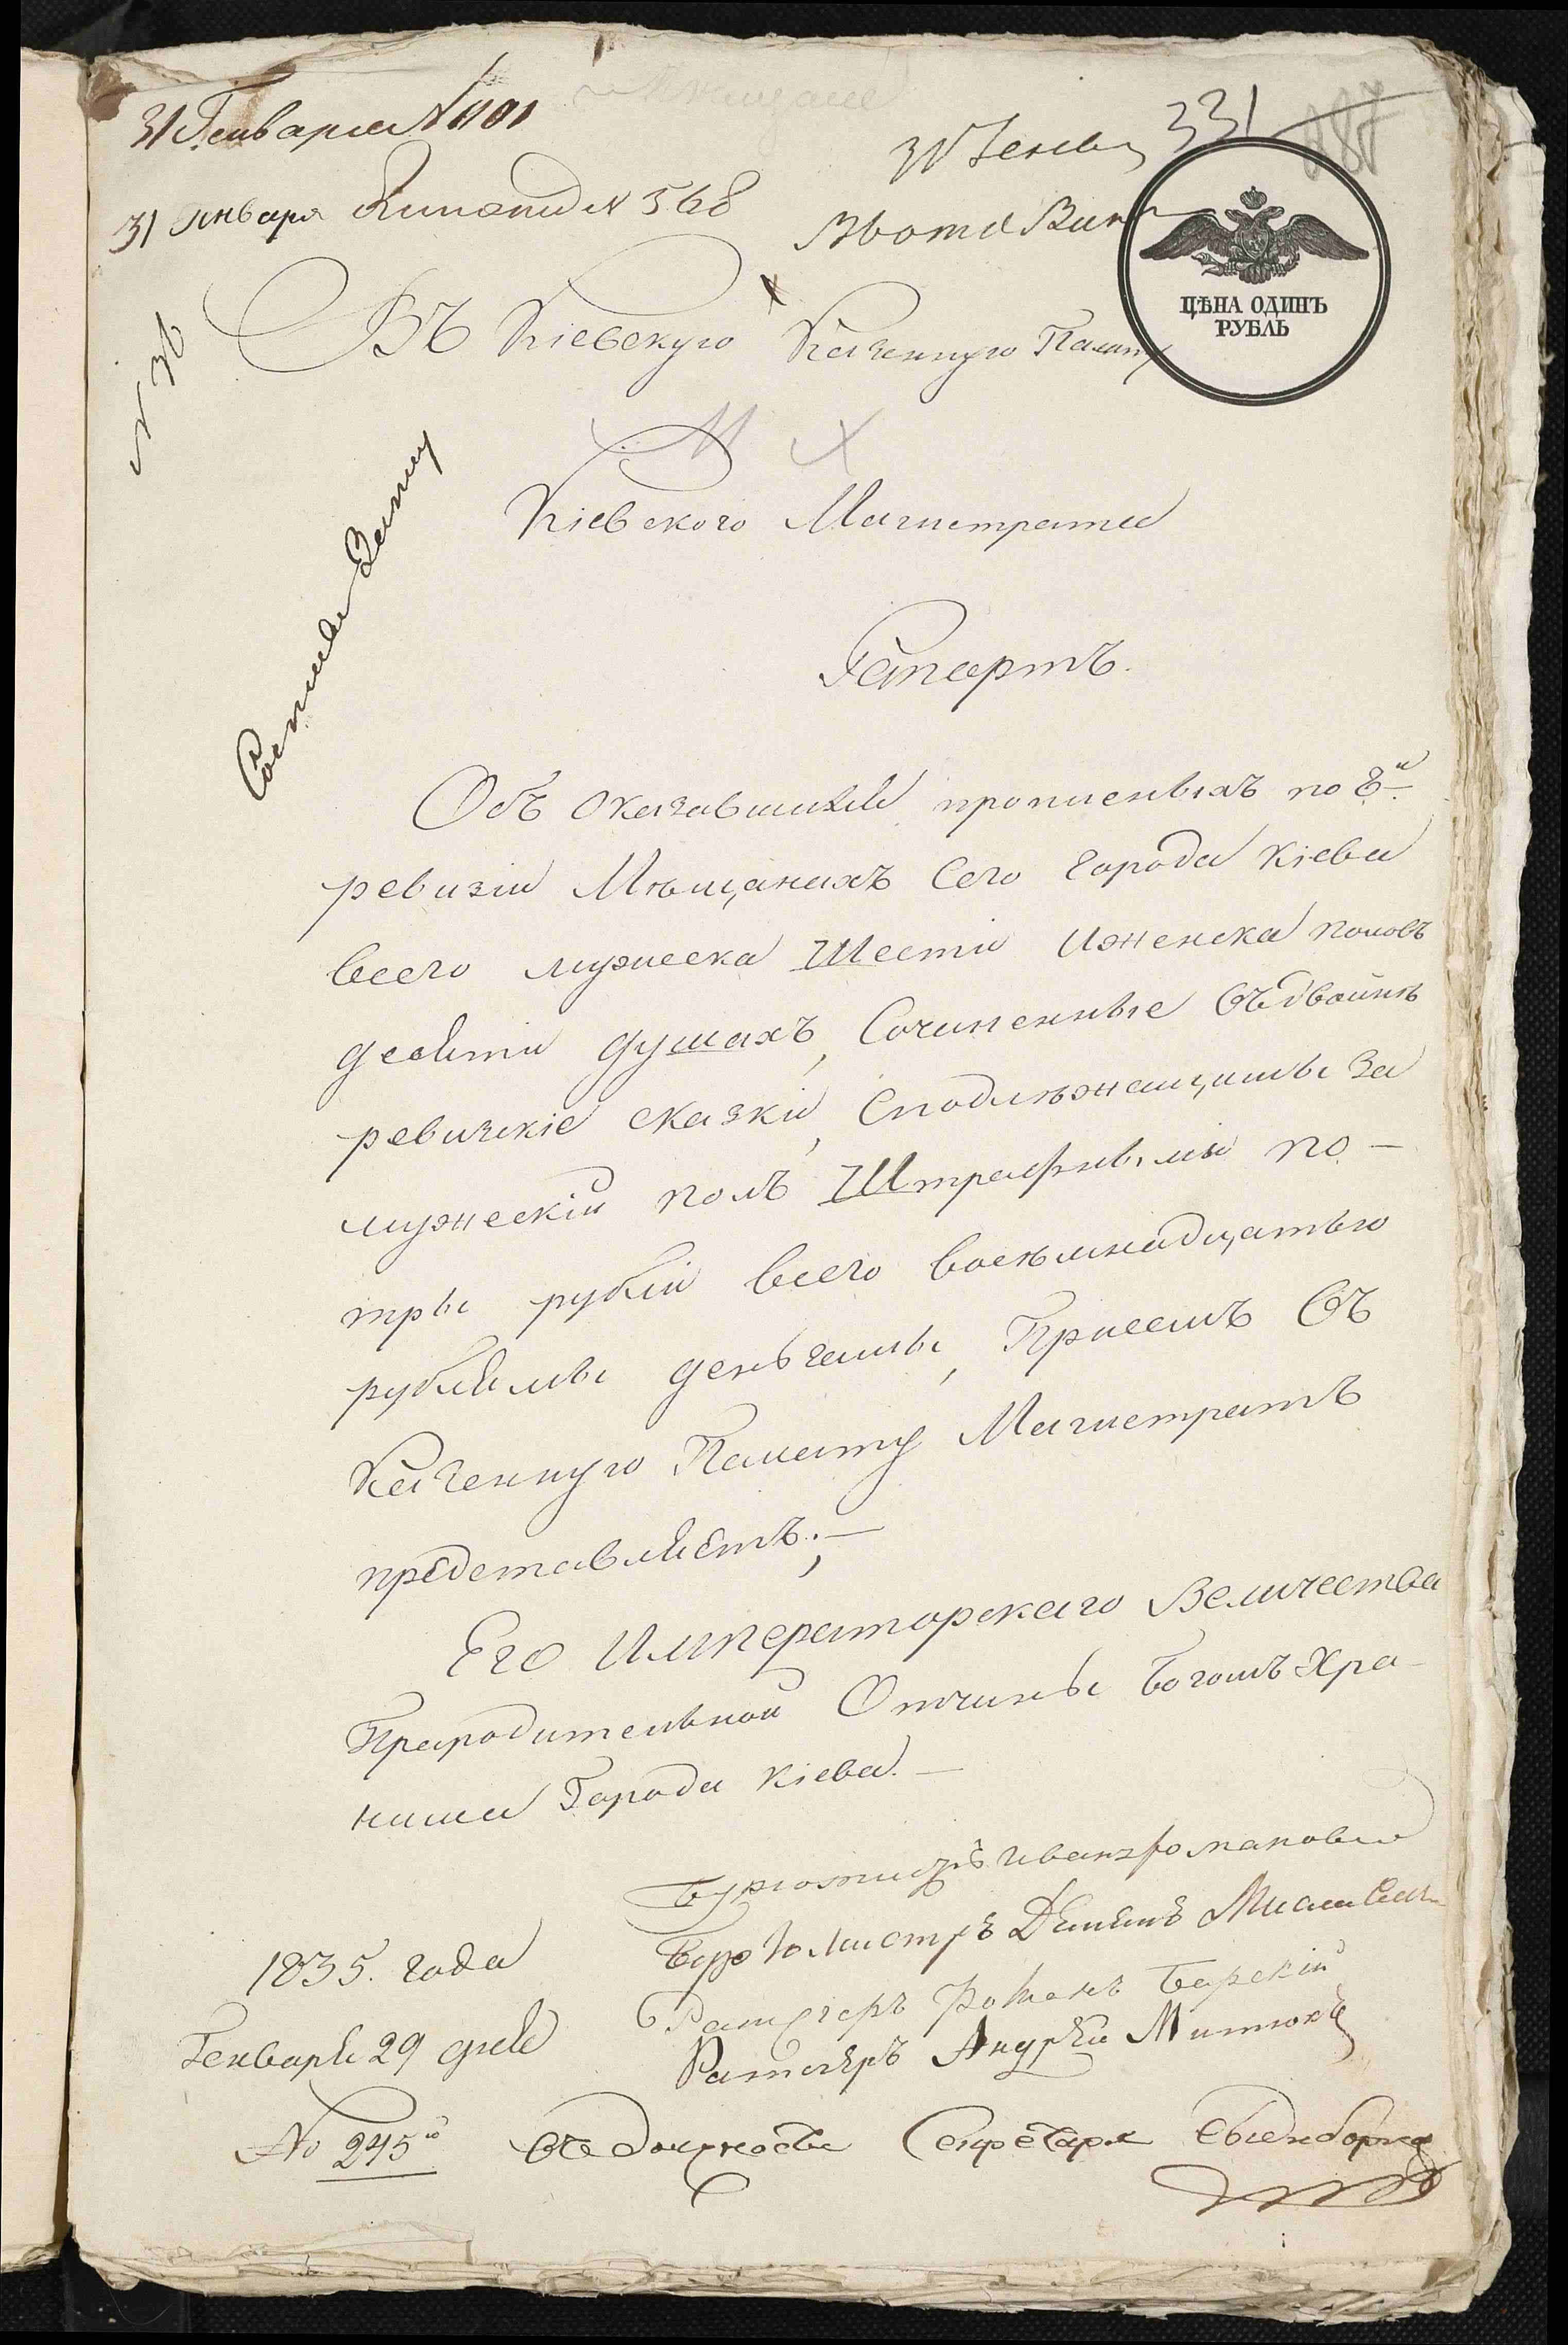 31 Генваря N 1101
31 Генв 331
31 января N 568
ЦѢНА ОДИНЪ
РУБЛЬ
Въ Кіевскую Казенную Палату
N 36
Кіевского Магистрата
Рапортъ.
Объ оказавшихся прописныхъ по 8й
ревизіи Мѣщанахъ сего города Кіева
всего мужеска Шести и женска половъ
десяти душахъ, Сочиненные Въ двойнѣ
ревизскіе сказки, Споднѣжащимы за
мужескій полъ Штрафнымы по
тры рублі всего восѣмнадцатью
рублямы деньгамы, Присемъ Въ
Казенную Палату Магистратъ
прѣдставляетъ;—
Его Императорскаго Величества
Прародительной Отчины Богомъ Хра-
нима Города Кіева.—
Бургомистръ Иванъ Романовъ
Бургомистръ
Ратгеръ Романъ Барскій
1835. года
Ратгеръ Андрей
Генваря 29 дня
№ 245
въ должности Секретаря